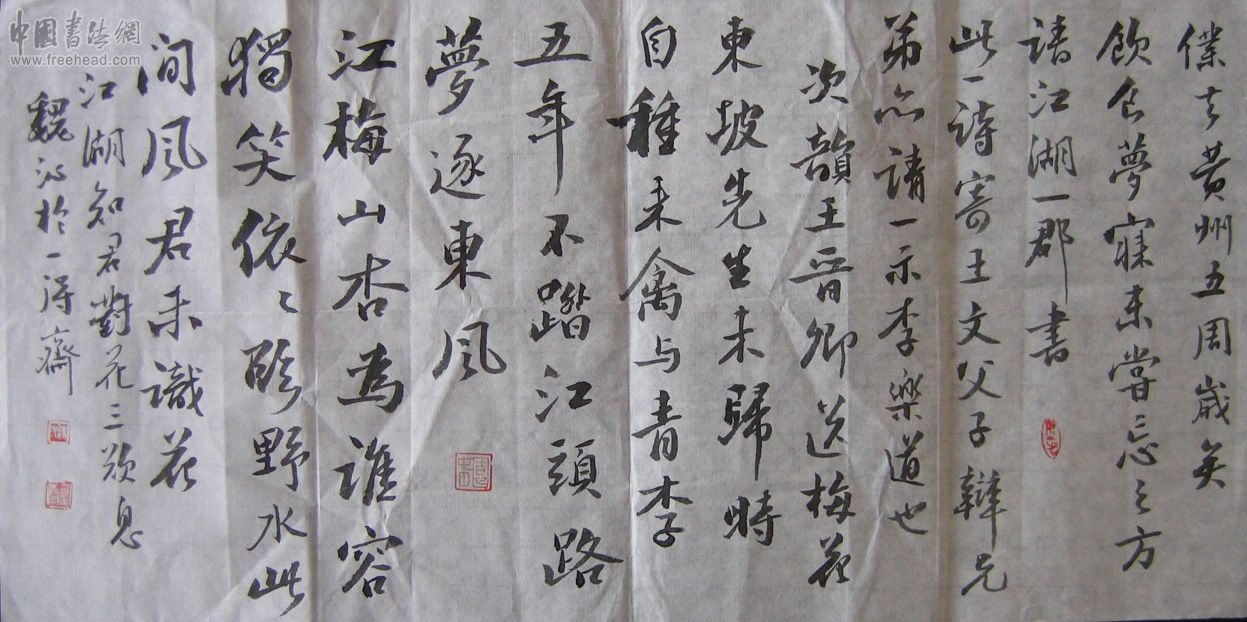 僕去黄州五周歲矣
飲食夢寐未嘗忘之方
請江湖一郡書
此一詩寄王文父子辯兄
弟亦請一示李樂道也
次韻王晋卿送梅花
東坡先生未歸時
自種来禽与青李
五年不踏江頭路
夢逐東風
江梅山杏為誰容
獨笑依〻臨野水此
间風君未識花
江湖知君對花三歎息
魏於一得齋
中国書法網
www.freehead.com